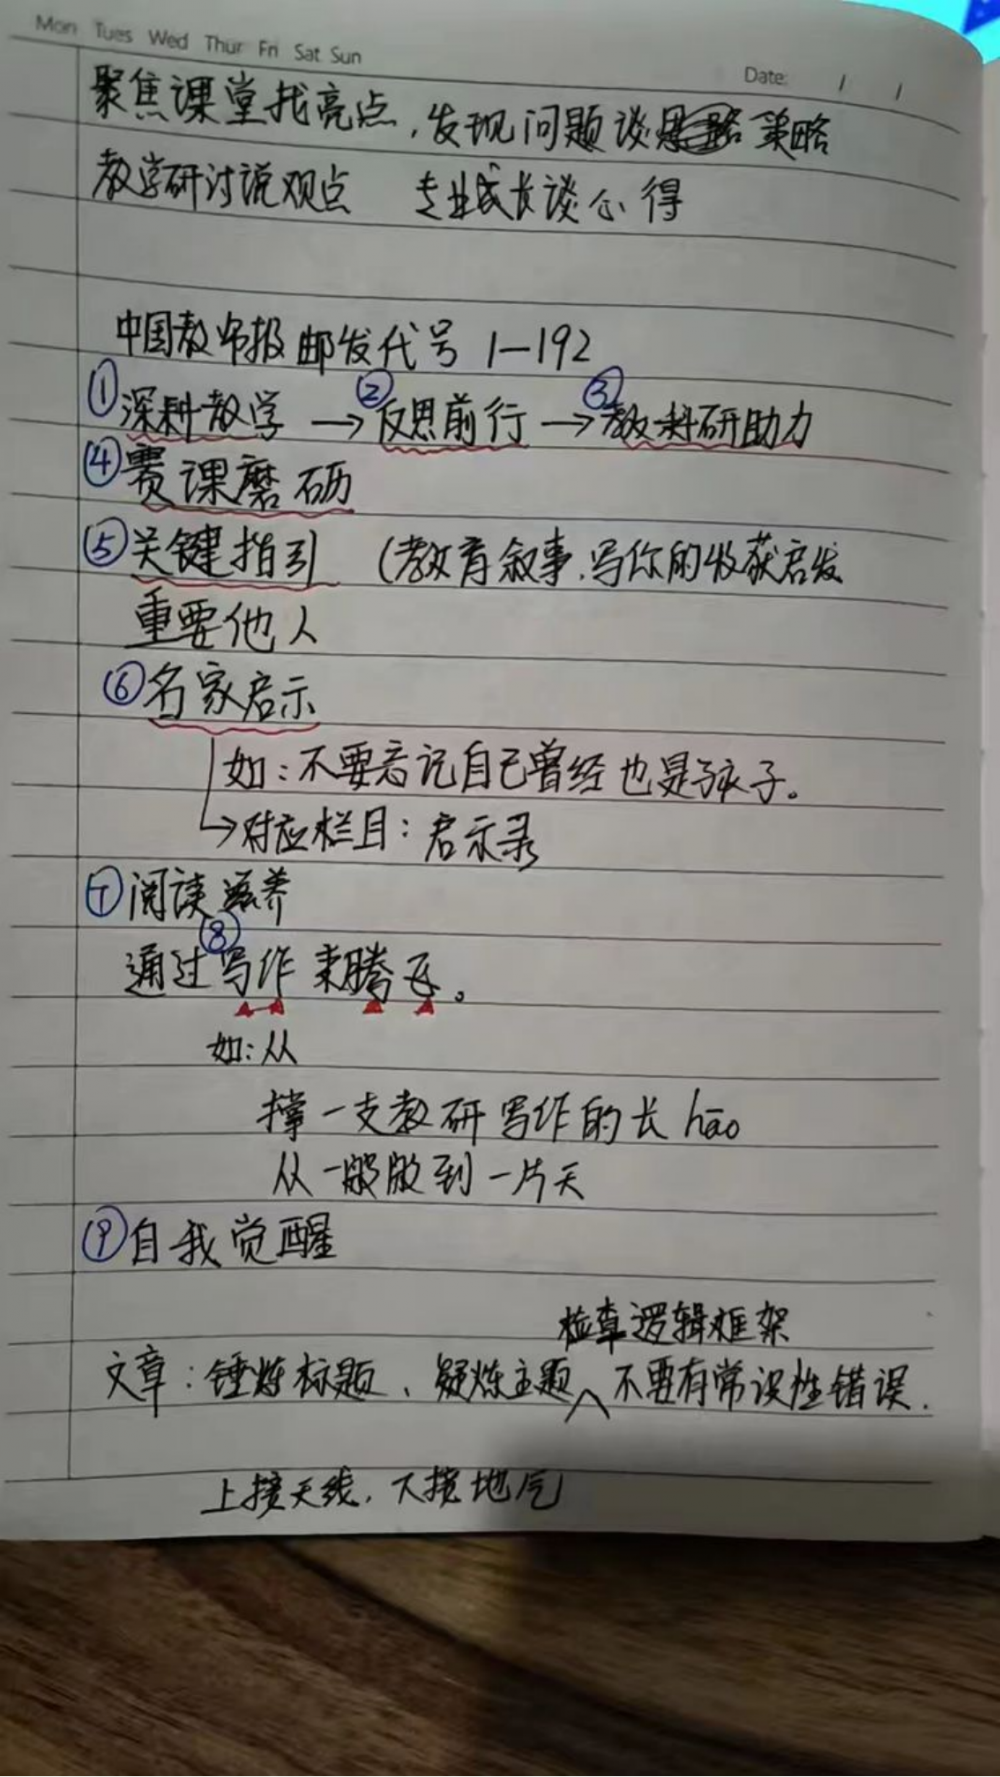 Mon Tues Wed Thur Fri Sat Sun
Date: / /
聚焦课堂找亮点，发现问题谈策略
教学研讨说观点 专业成长谈心得
中国教师报 邮发代号 1—192
①深耕教学 →②反思前行 →③教科研助力
④赛课磨砺
⑤关键指引 （教育叙事.写你的收获启发
重要他人
⑥名家启示
如：不要忘记自己曾经也是孩子。
→对应栏目：启示录
⑦阅读滋养
通过⑧写作来腾飞。
如：从
撑一支教研写作的长hāo
从一般般到一片天
⑨自我觉醒
检查逻辑框架
文章：锤炼标题、凝炼主题∧不要有常识性错误.
上接天线，下接地气